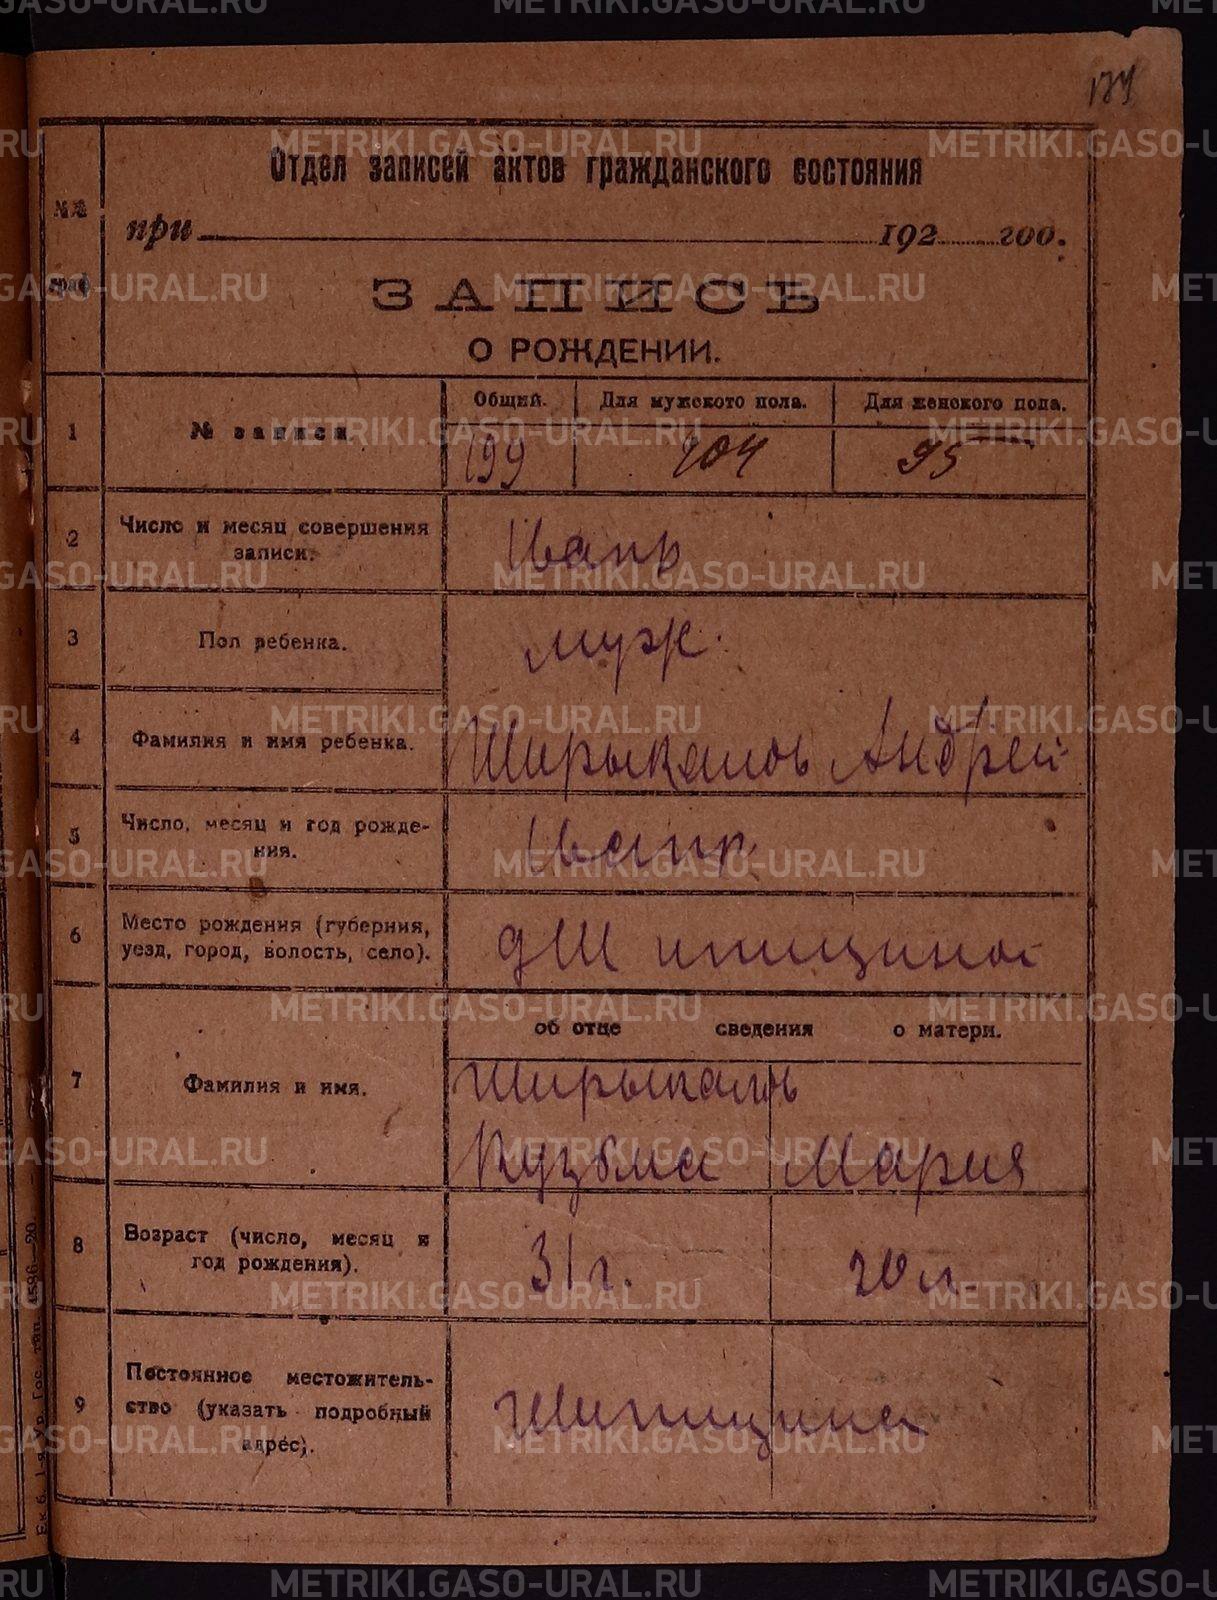 179
Отдел записей актов гражданского состояния
№№
граф
при 192 год.
ЗАПИСЬ
О РОЖДЕНИИ.
1
№ записи
Общий.
Для мужского пола.
Для женского пола.
199
104
95
2
Число и месяц совершения
записи.
3
Пол ребенка.
муж.
4
Фамилия и имя ребенка.
Ширыкаловъ Андрей
5
Число, месяц и год рожде-
ния.
6
Место рождения (губерния,
уезд, город, волость, село).
д Шипициной
об отце сведения о матери.
7
Фамилия и имя.
Ширыкаловъ
Кузьма Мария
8
Возраст (число, месяц и
год рождения).
31 г.
20 л.
9
Постоянное местожитель-
ство (указать подробный
адрес).
Шипицина
Ек б. 1-я Ур. Гос. тип. 4586—20.
METRIKI.GASO-URAL.RU